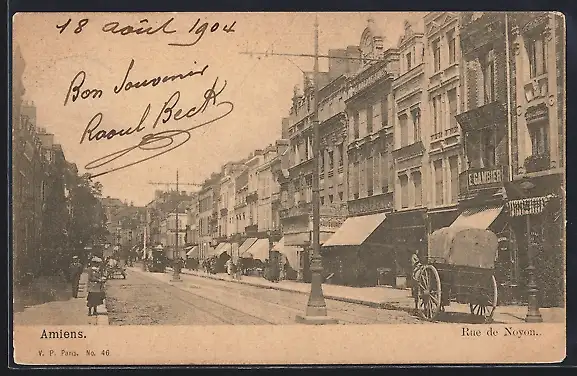 18 août 1904
Bon Souvenir
Raoul Beck
E. GAMBIER
Amiens.
Rue de Noyon.
V. P. Paris. No. 46